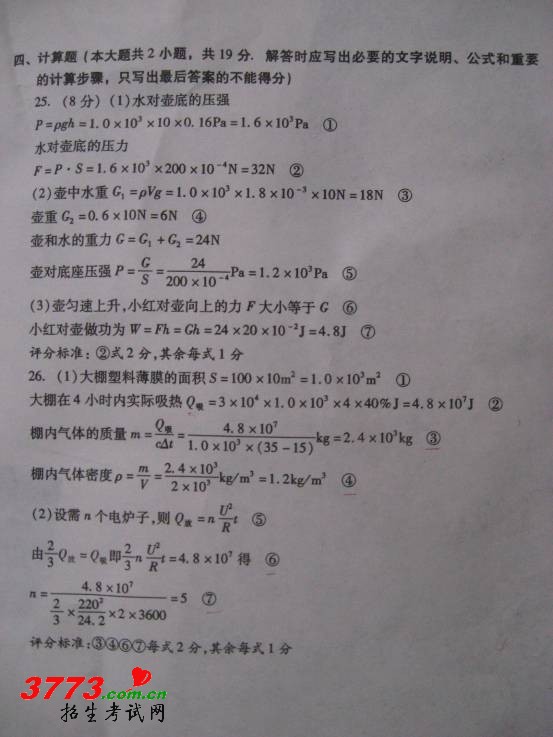 四、计算题(本大题共2小题，共19分. 解答时应写出必要的文字说明、公式和重要
的计算步骤，只写出最后答案的不能得分)
25. (8分)(1)水对壶底的压强
P=ρgh=1.0×10³×10×0.16Pa=1.6×10³Pa ①
水对壶底的压力
F=P·S=1.6×10³×200×10⁻⁴N=32N ②
(2)壶中水重 G₁=ρVg=1.0×10³×1.8×10⁻³×10N=18N ③
壶重 G₂=0.6×10N=6N ④
壶和水的重力 G=G₁+G₂=24N
壶对底座压强 P=G/S=24/(200×10⁻⁴)Pa=1.2×10³Pa ⑤
(3)壶匀速上升,小红对壶向上的力 F 大小等于 G ⑥
小红对壶做功为 W=Fh=Gh=24×20×10⁻²J=4.8J ⑦
评分标准:②式2分,其余每式1分
26. (1)大棚塑料薄膜的面积 S=100×10m²=1.0×10³m² ①
大棚在4小时内实际吸热 Q吸=3×10⁴×1.0×10³×4×40%J=4.8×10⁷J ②
棚内气体的质量 m=Q吸/(cΔt)=4.8×10⁷/(1.0×10³×(35-15))kg=2.4×10³kg ③
棚内气体密度 ρ=m/V=2.4×10³/(2×10³)kg/m³=1.2kg/m³ ④
(2)设需 n 个电炉子,则 Q放=n(U²/R)t ⑤
由(2/3)Q放=Q吸即(2/3)n(U²/R)t=4.8×10⁷得 ⑥
n=4.8×10⁷/((2/3)×(220²/24.2)×2×3600)=5 ⑦
评分标准:③④⑥⑦每式2分,其余每式1分
3773.com.cn
招生考试网